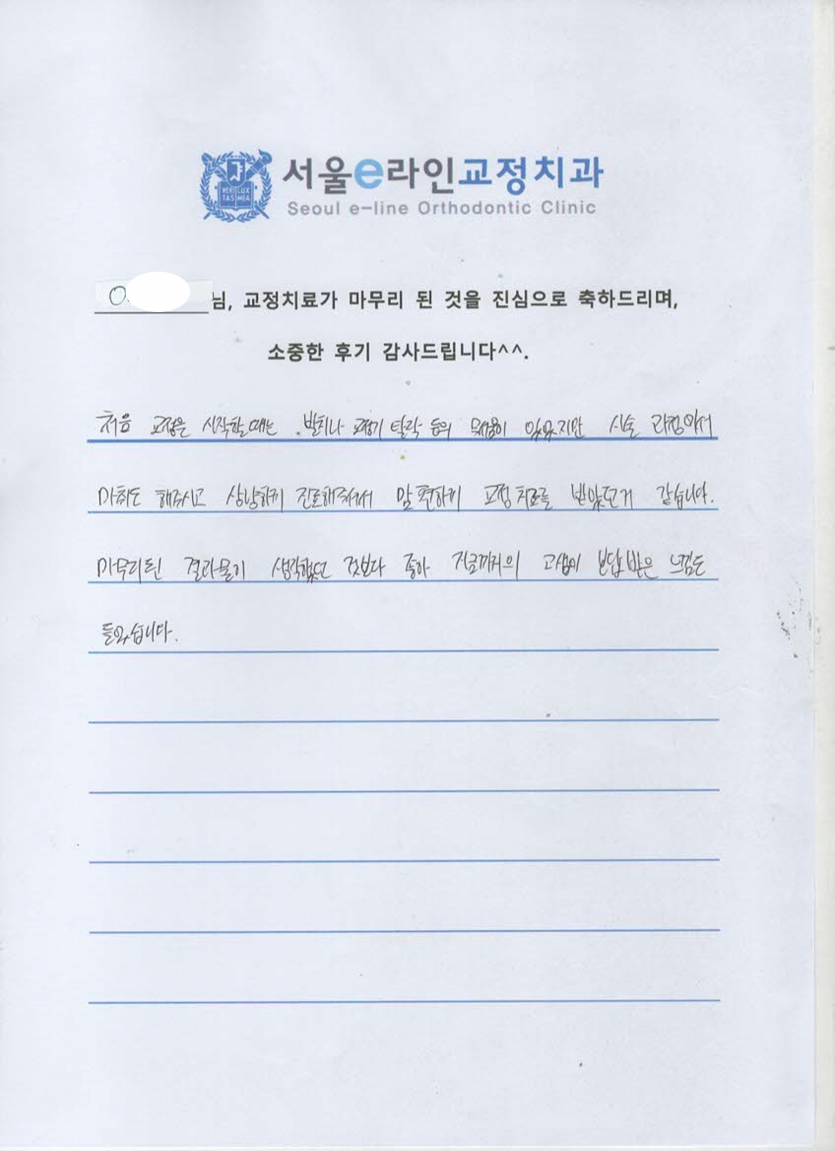 서울e라인교정치과
Seoul e-line Orthodontic Clinic
님, 교정치료가 마무리 된 것을 진심으로 축하드리며,
소중한 후기 감사드립니다^^.
처음 교정을 시작할때는 발치나 교정기 탈락 등의 무서움이 있었지만 시술 과정에서
마취도 해주시고 상냥하게 진료해주셔서 맘 편하게 교정치료를 받았던거 같습니다.
마무리된 결과물이 생각했던 것보다 좋아 지금까지의 고생이 보답받은 느낌도
들었습니다.